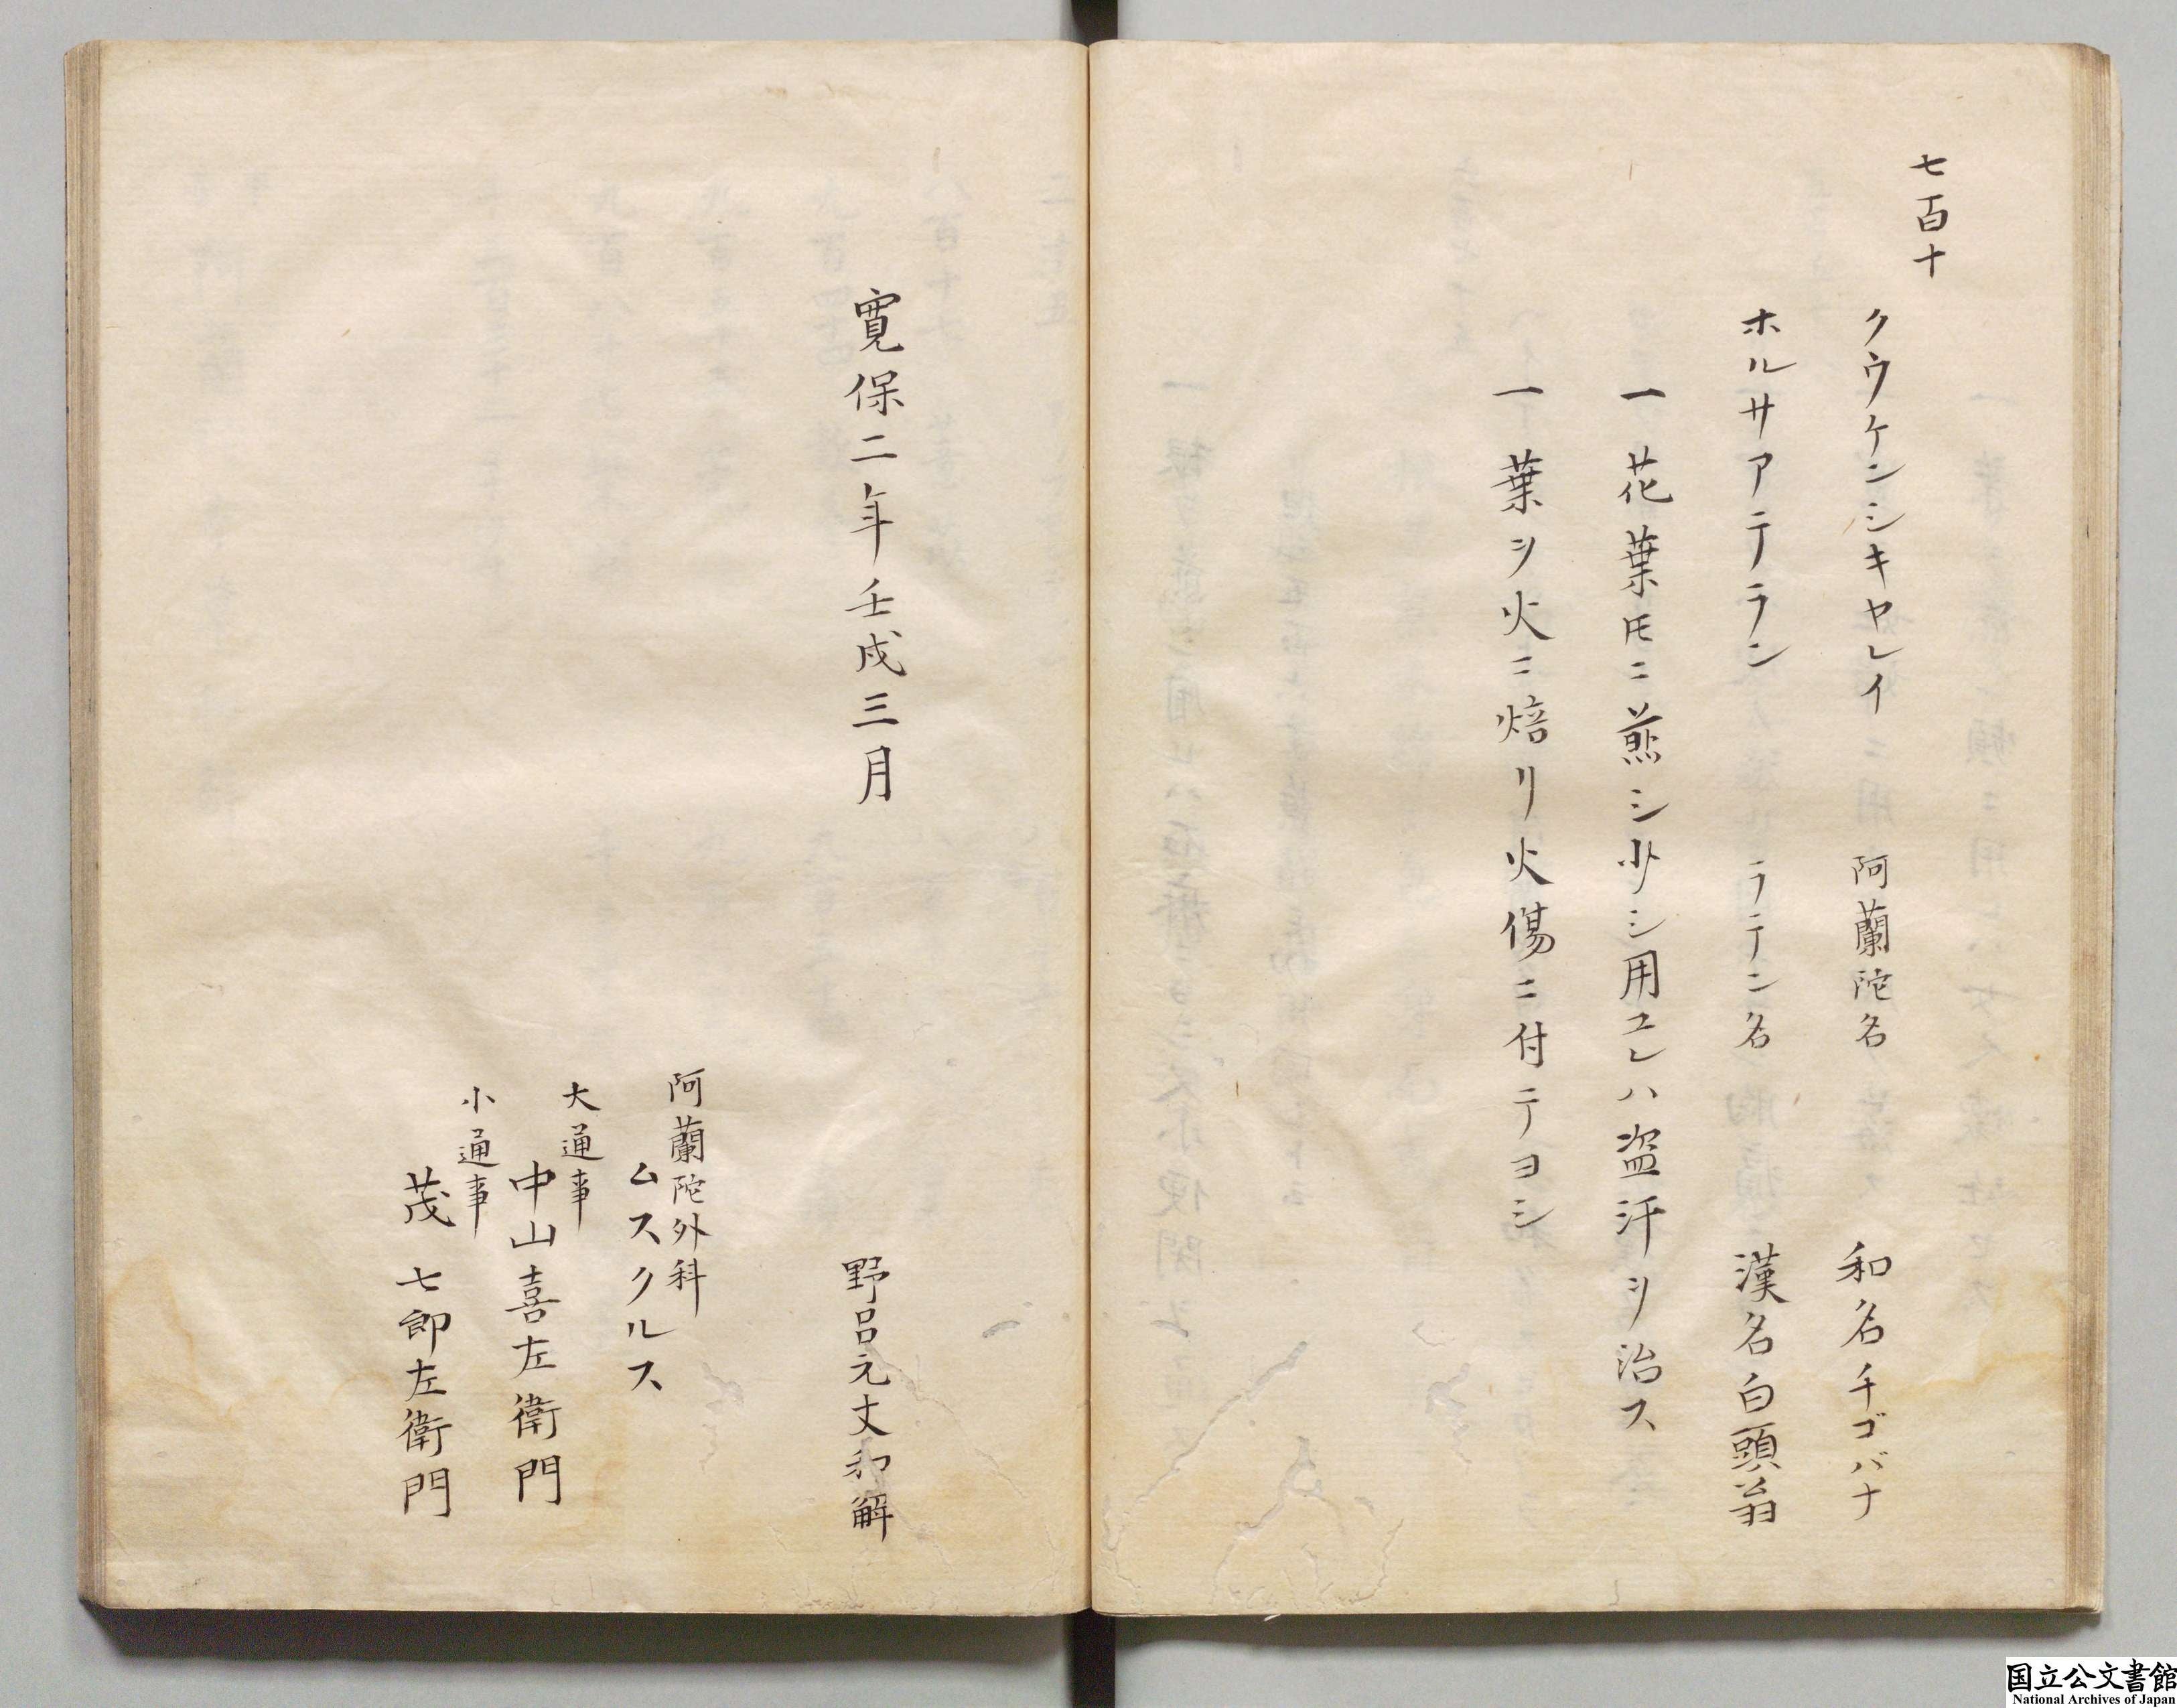 七百十
クウケンシキヤレイ　阿蘭陀名　和名チゴバナ
ホルサアテラン　ラテン名　漢名白頭翁
一花葉𪜈ニ煎シ少シ用ユレハ盗汗ヲ治ス
一葉ヲ火ニ焙リ火傷ニ付テヨシ
寛保二年壬戌三月
野呂元丈和解
阿蘭陀外科
ムスクルス
大通事
中山喜左衛門
小通事
茂七郎左衛門
国立公文書館
National Archives of Japan